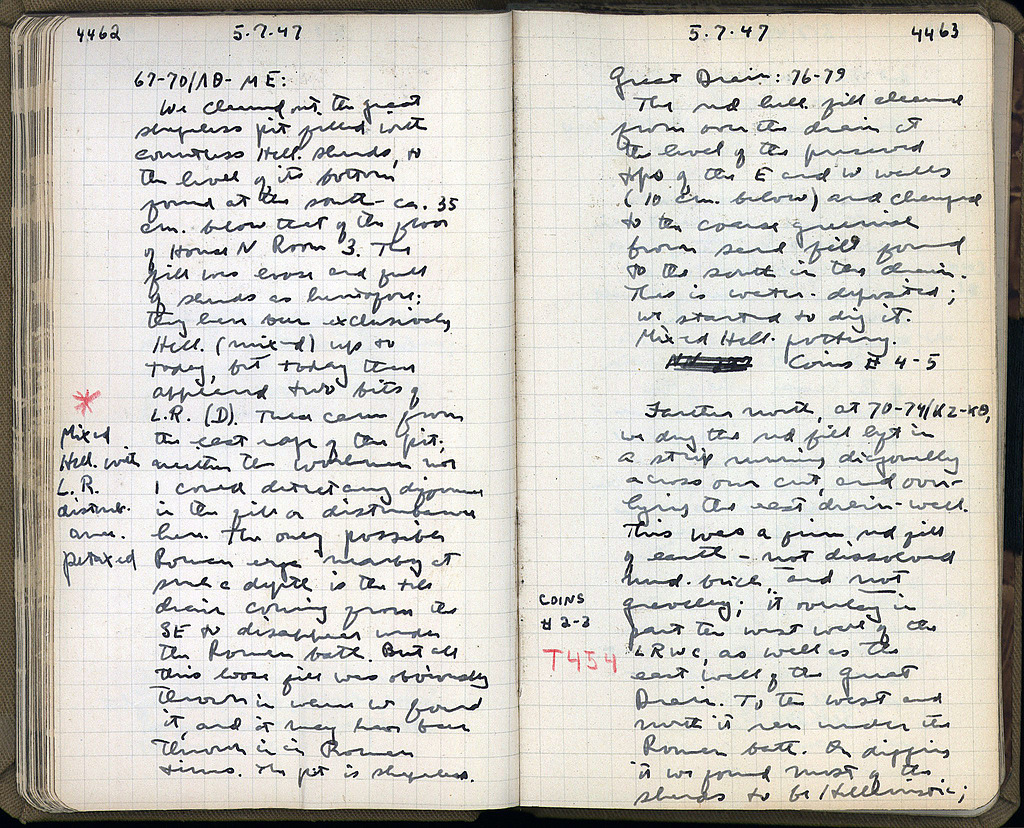 4462
5.7.47
67-70/ΛΘ-ΜΕ:
We cleaned out the great
shapeless pit filled with
countless Hell. sherds, to
the level of its bottom
found at the south - ca. 35
cm. below that of the floor
of House N Room 3. The
fill was loose and full
of sherds as heretofore;
they have been exclusively
Hell. (mixed) up to
today, but today there
appeared two bits of
L.R. (D). These came from
the east edge of the pit;
neither the workmen nor
I could detect any difference
in the fill or disturbance
here. The only possible
Roman nearby at
such a depth is the tile
drain coming from the
SE to disappear under
the Roman bath. But all
this loose fill was obviously
thrown in where we found
it, and it may have been
thrown in in Roman
times. The pit is shapeless.
Mixed
Hell. with
L.R.
disturb-
ance.
5.7.47
4463
Great Drain: 76-79
The red hell. fill cleaned
from over the drain at
the level of the preserved
tops of the E and W walls
(10 cm. below) and changed
to the coarse greenish
brown sand fill found
to the south in the drain.
This is water-deposited;
we started to dig it.
Mixed Hell. pottery.
Coins # 4-5
Farther north, at 70-74/
we dug the red fill left in
a strip running diagonally
across our cut, and over-
lying the east drain-wall.
This was a firm, red fill
of earth - not dissolved
mud-brick, and not
gravelly; it overlay in
part the west wall of the
LRWC, as well as the
east wall of the Great
Drain. To the west and
north it ran under the
Roman bath. In digging
it we found most of the
sherds to be Hellenistic;
COINS
# 2-3
T454